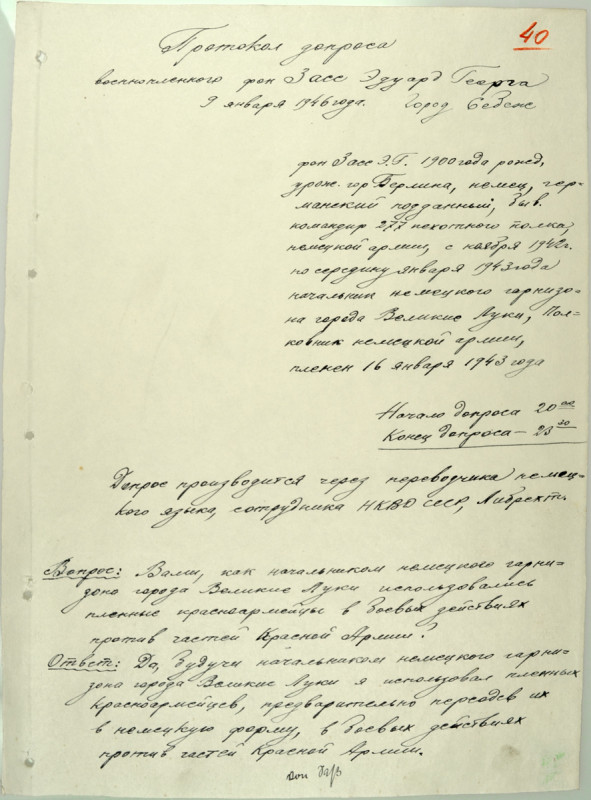 40
Протокол допроса
военнопленного фон Засс Эдуард Георга
9 января 1946 года. Город Себеж
фон Засс Э.Г. 1900 года рожд,
урож. гор Берлина, немец, гер-
манский подданный, быв.
командир 277 пехотного полка,
немецкой армии, с ноября 1942г.
по середину января 1943 года
начальник немецкого гарнизо-
на города Великие Луки, Пол-
ковник немецкой армии,
пленен 16 января 1943 года
Начало допроса 20 00
Конец допроса — 23 30
Допрос производится через переводчика немец-
кого языка, сотрудника НКВД СССР, Либрехт.
Вопрос: Вами, как начальником немецкого гарни-
зона города Великие Луки использовались
пленные красноармейцы в боевых действиях
против частей Красной Армии?
Ответ: Да, будучи начальником немецкого гарни-
зона города Великие Луки я использовал пленных
красноармейцев, предварительно переодев их
в немецкую форму, в боевых действиях
против частей Красной Армии.